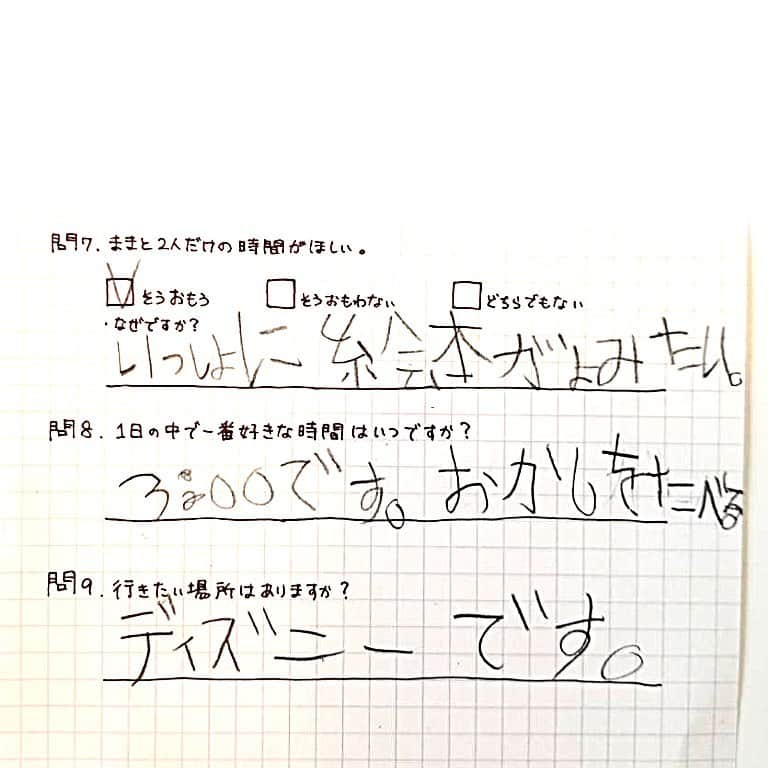 問7. ままと2人だけの時間がほしい。
☑そうおもう □そうおもわない □どちらでもない
・なぜですか?
いっしょに絵本がよみたい。
問8. 1日の中で一番好きな時間はいつですか?
3:00です。おかしをたべる
問9. 行きたい場所はありますか?
ディズニーです。